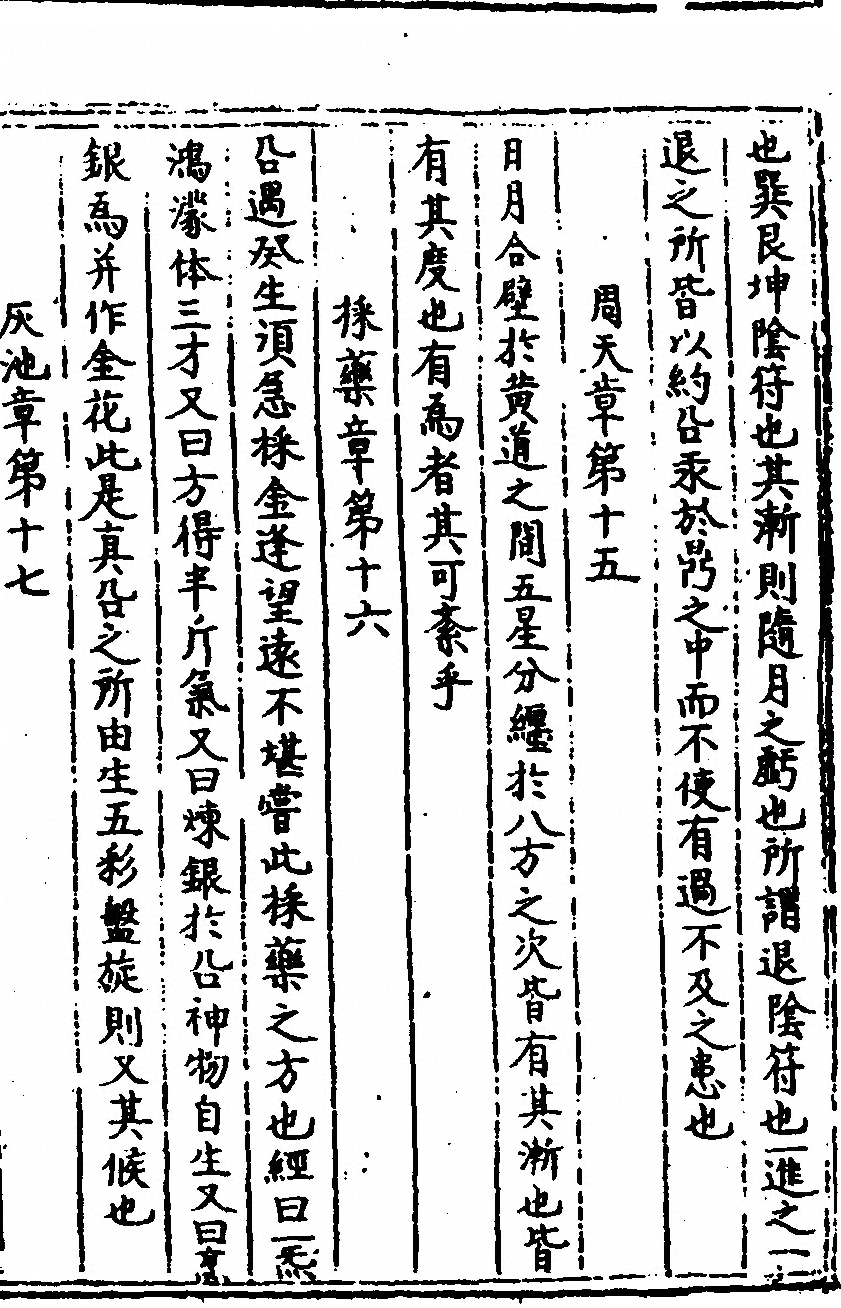 也巽艮坤陰符也其漸則隨月之虧也所謂退陰符也一進之一
退之所皆以約鈆汞於鼎之中而不使有過不及之患也
周天章第十五
日月合壁於黄道之間五星分纏於八方之次皆有其漸也皆
有其度也有為者其可紊乎
採藥章第十六
鈆遇癸生須急採金逢望遠不堪嘗此採藥之方也經曰一炁
鴻濛体三才又曰方得半斤氣又曰煉銀於鈆神物自生又曰
銀為并作金花此是真鈆之所由生五彩盤旋則又其候也
灰池章第十七